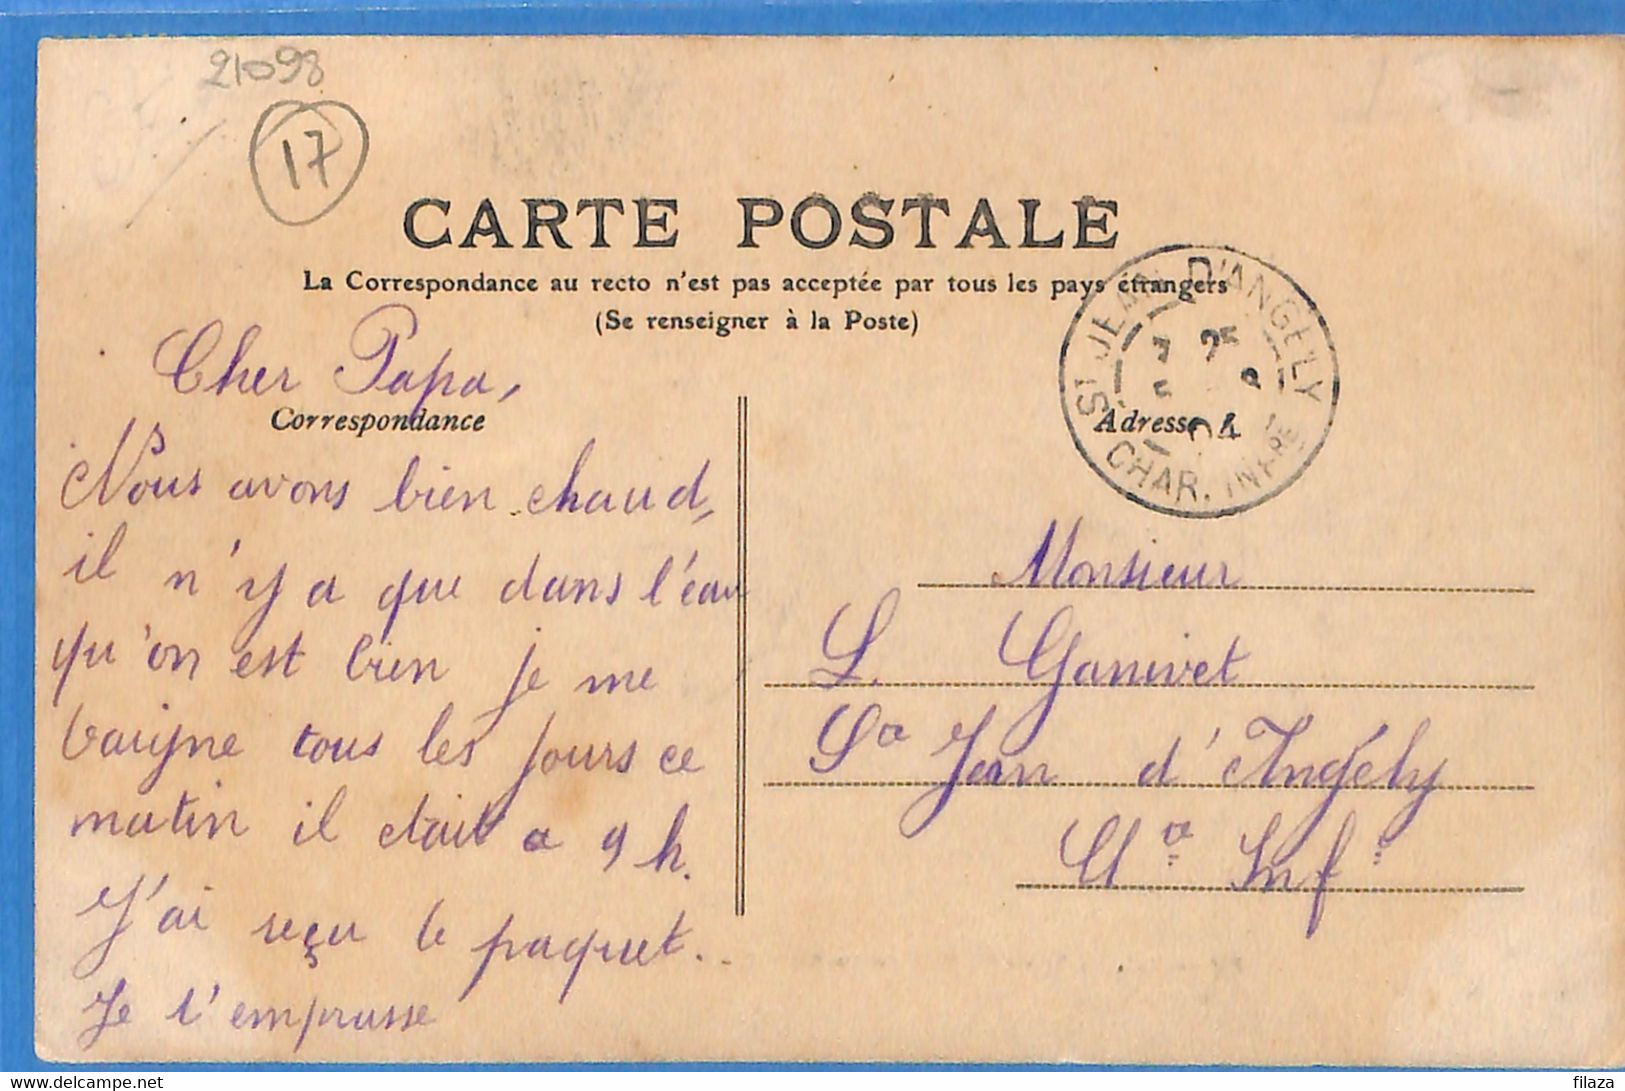 21098
17
CARTE POSTALE
La Correspondance au recto n'est pas acceptée par tous les pays étrangers
(Se renseigner à la Poste)
ST JEAN D'ANGÉLY
CHAR. INFRE
04
Correspondance
Adresse
Cher Papa,
Nous avons bien chaud,
il n'y a que dans l'eau
qu'on est bien je me
baigne tous les jours ce
matin il était a 9 h.
J'ai reçu le paquet..
Je t'emprasse
Monsieur
L. Ganivet
Jean d'Angély
Inf
filaza